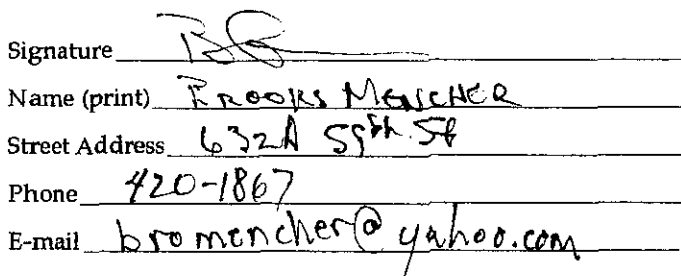 Signature
Name (print) Brooks Mencher
Street Address 632A 59th St
Phone 420-1867
E-mail bromencher@yahoo.com